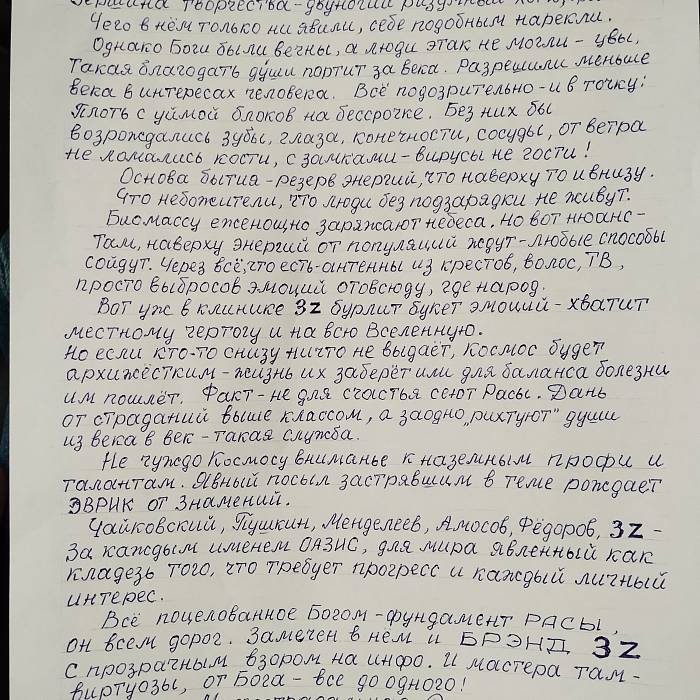 Вершина творчества - двуногий разумный
Чего в нём только ни явили, себе подобным нарекли.
Однако Боги были вечны, а люди этак не могли - увы,
Такая благодать ду́ши портит за века. Разрешили меньше
века в интересах человека. Всё подозрительно - и в точку:
Плоть с уймой блоков на бессрочке. Без них бы
возрождались зубы, глаза, конечности, сосуды, от ветра
не ломались кости, с замками - вирусы не гости!
Основа бытия - резерв энергий, что наверху то и внизу.
Что небожители, что люди без подзарядки не живут.
Биомассу еженощно заряжают небеса. Но вот нюанс -
Там, наверху энергий от популяций ждут - любые способы
сойдут. Через всё, что есть - антенны из крестов, волос, ТВ,
просто выбросов эмоций отовсюду, где народ.
Вот уж в клинике 3Z бурлит букет эмоций - хватит
местному чертогу и на всю Вселенную.
Но если кто-то снизу ничто не выдаёт, Космос будет
архижёстким - жизнь их заберёт или для баланса болезни
им пошлёт. Факт - не для счастья сеют Расы. Дань
от страданий выше классом, а заодно „рихтуют" души
из века в век - такая служба.
Не чуждо Космосу вниманье к наземным профи и
талантам. Явный посыл застрявшим в теме рождает
ЭВРИК от Знамений.
Чайковский, Пушкин, Менделеев, Амосов, Фёдоров, 3Z -
За каждым именем ОАЗИС, для мира явленный как
кладезь того, что требует прогресс и каждый личный
интерес.
Всё поцелованное Богом - фундамент РАСЫ,
он всем дорог. Замечен в нём и БРЭНД 3Z
с прозрачным взором на инфо. И мастера там -
виртуозы, от Бога - все до одного!